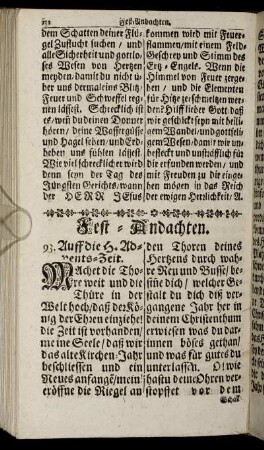 152 Fest-Andachten.
dem Schatten deiner Flü-
gel Zuflucht suchen / und
alle Sicherheit und gottlo-
ses Wesen von Hertzen
meyden / damit du nicht ü-
ber uns dermaleins Blitz /
Feuer und Schweffel reg-
nen lässest. Schrecklich ist
es / weñ du deinen Donner
hören / deine Wassergüsse
und Hagel sehen / und Erd-
beben uns fühlen lässest.
Wie viel schrecklicher wird
denn seyn der Tag des
Jüngsten Gerichts / wann
der HERR JEsus
kommen wird mit Feuer-
flammen / mit einem Feld-
Geschrey und Stimm des
Ertz-Engels. Wenn die
Himmel von Feuer zerge-
hen / und die Elementen
für Hitze zerschmeltzen wer-
den! Hilff grosser Gott daß
wir geschickt seyn mit heili-
gem Wandel / und gottseli-
gem Wesen / damit wir un-
befleckt und unsträflich für
dir erfunden werden / und
mit Freuden zu dir einge-
hen mögen in das Reich
der ewigen Herrlichkeit / A.
Fest-Andachten.
93. Auff die H. Ad-
vents-Zeit.
Machet die Tho-
re weit und die
Thüre in der
Welt hoch / daß der Kö-
nig der Ehren einziehe!
die Zeit ist vorhanden /
meine Seele / daß wir
das alte Kirchen-Jahr
beschliessen und ein
Neues anfangen / mein!
eröffne die Riegel an
den Thoren deines
Hertzens durch wah-
re Reu und Busse / be-
sinne dich / welcher Ge-
stalt du dich diß ver-
gangene Jahr her in
deinem Christenthum
erwiesen was du dar-
innen böses gethan /
und was für gutes du
unterlassen. O! wie
hastu deine Ohren ver-
stopffet vor dem
Schal